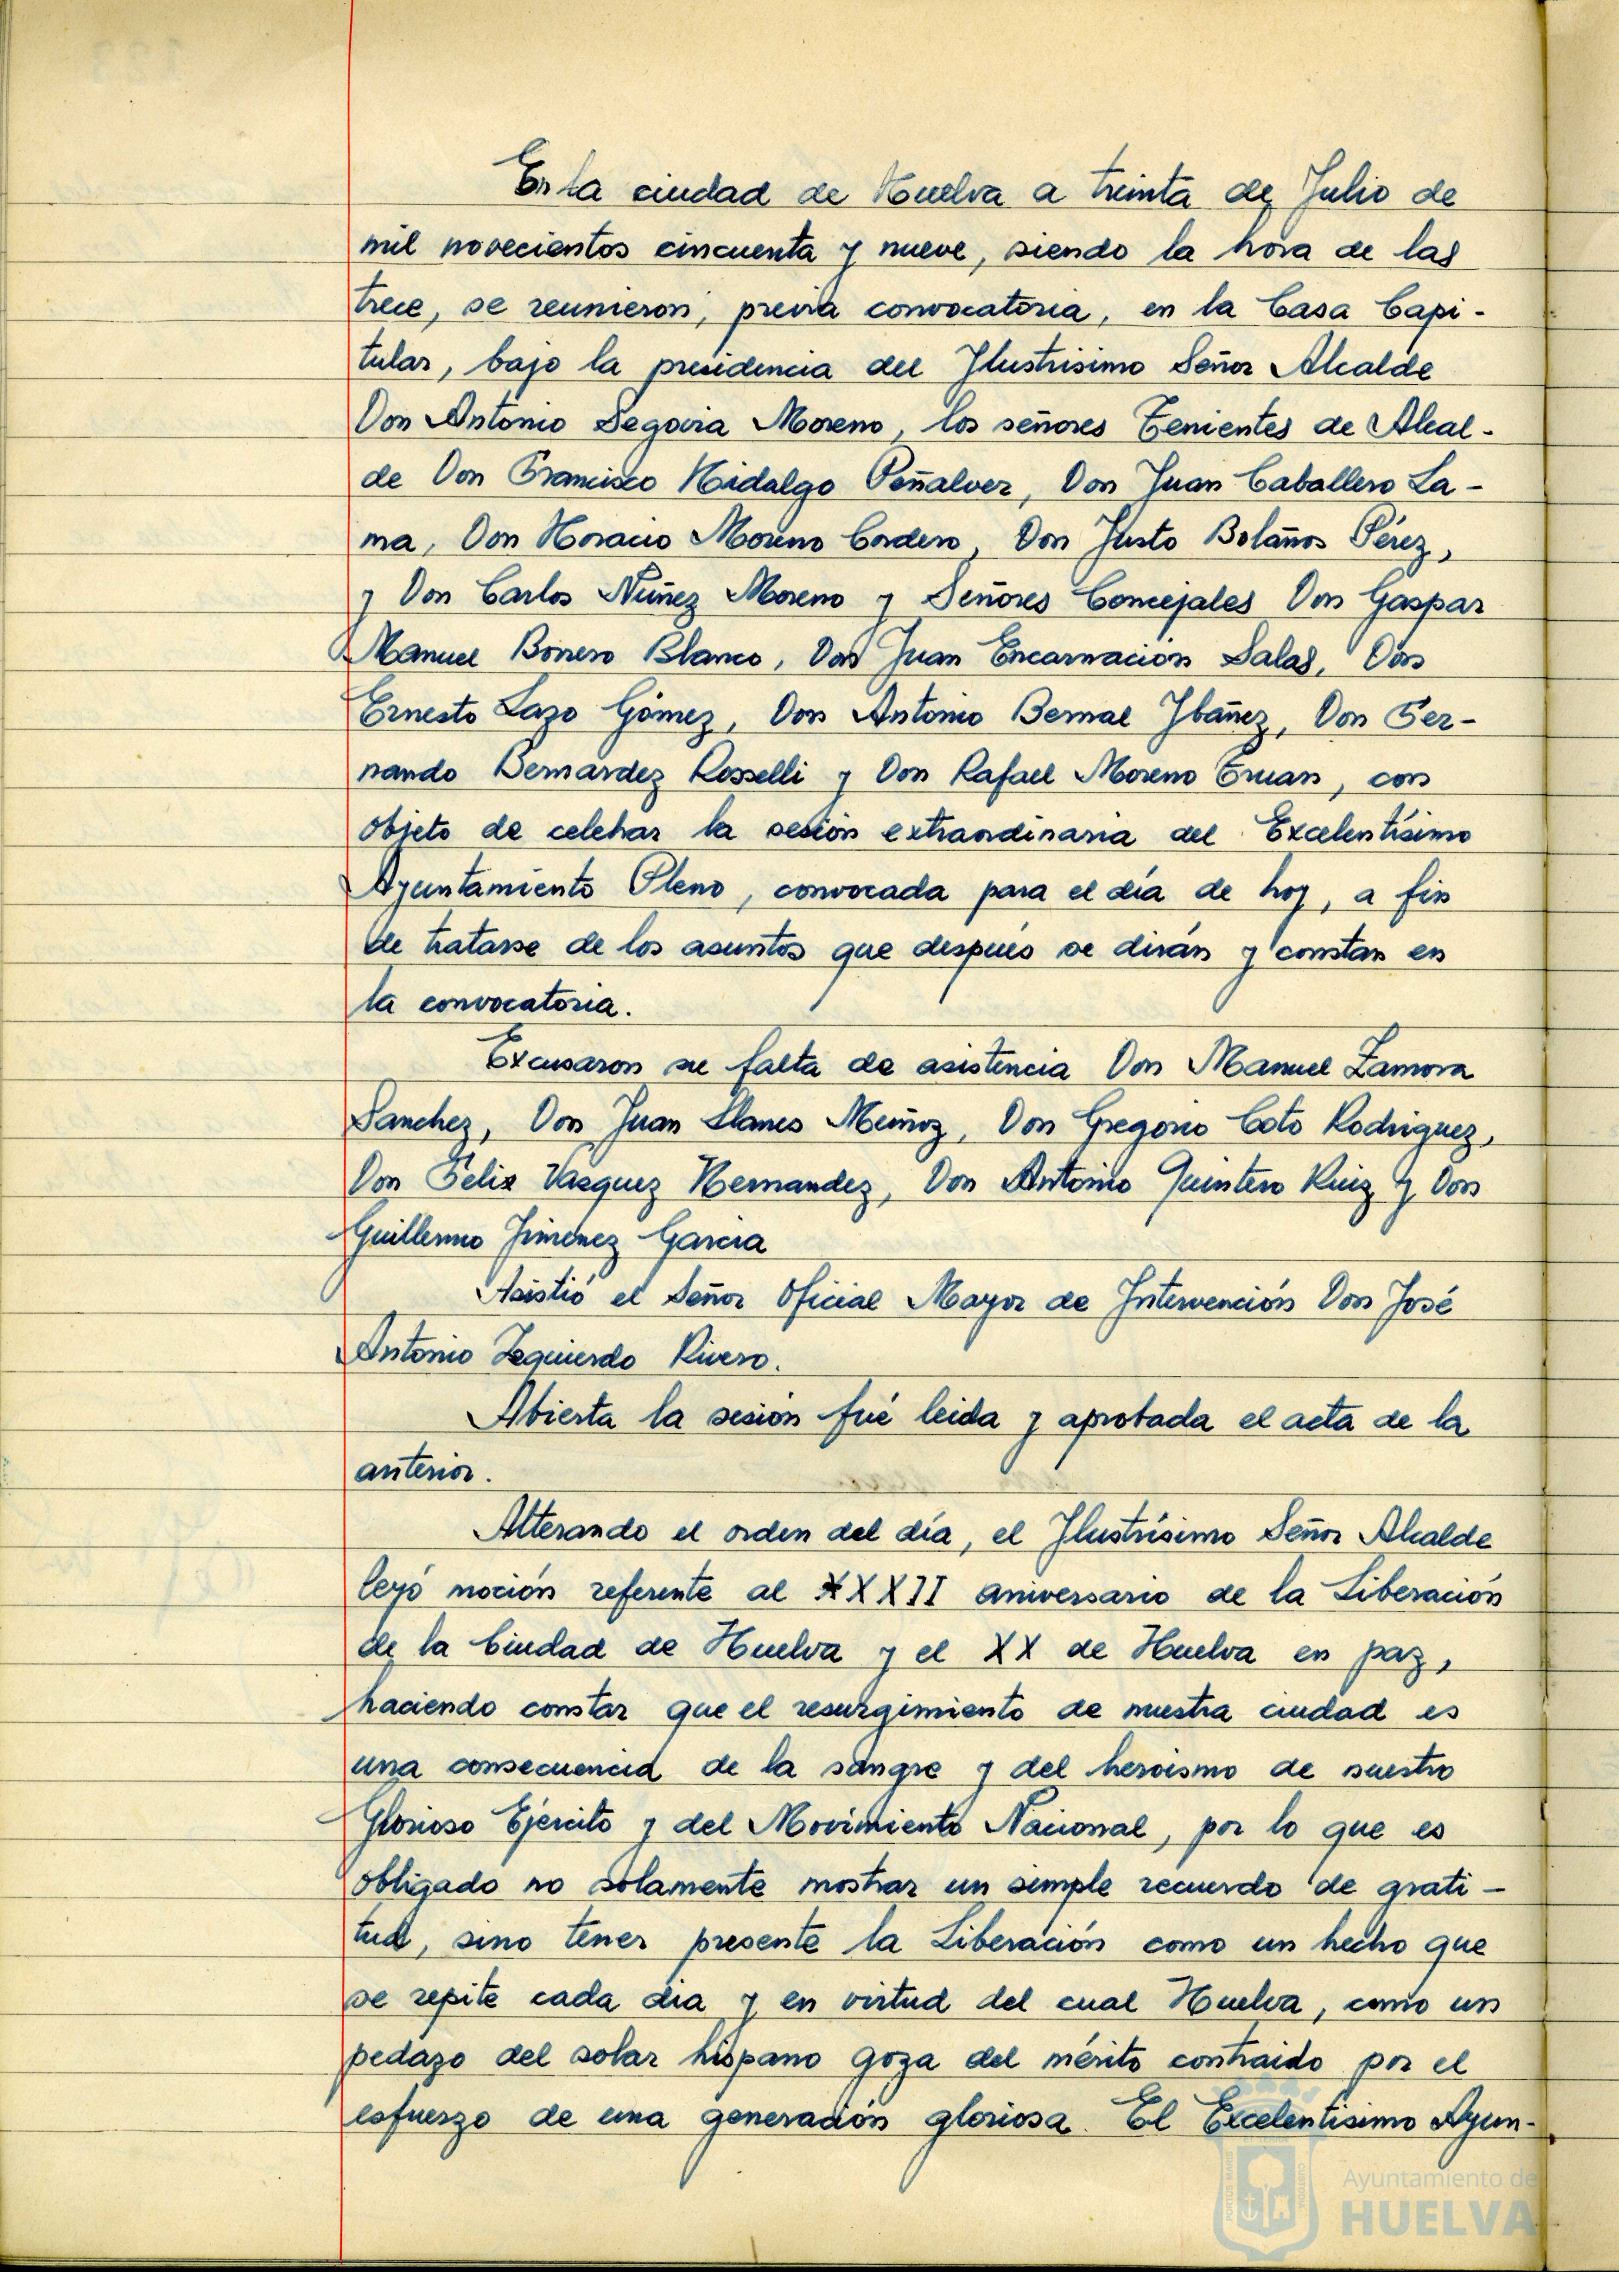 En la ciudad de Huelva a treinta de Julio de
mil novecientos cincuenta y nueve, siendo la hora de las
trece, se reunieron, previa convocatoria, en la Casa Capi-
tular, bajo la presidencia del Ilustrisimo Señor Alcalde
Don Antonio Segovia Moreno, los señores Tenientes de Alcal-
de Don Francisco Hidalgo Peñalver, Don Juan Caballero La-
ma, Don Horacio Moreno Cordero, Don Justo Bolaños Pérez,
y Don Carlos Núñez Moreno y Señores Concejales Don Gaspar
Manuel Borrero Blanco, Don Juan Encarnación Salas, Don
Ernesto Lazo Gómez, Don Antonio Bernal Ibáñez, Don Fer-
nando Bernardez Rosselli y Don Rafael Moreno Eruan, con
objeto de celebrar la sesión extraordinaria del Excelentísimo
Ayuntamiento Pleno, convocada para el día de hoy, a fin
de tratarse de los asuntos que después se dirán y constan en
la convocatoria.
Excusaron su falta de asistencia Don Manuel Zamora
Sanchez, Don Juan Llanes Muñoz, Don Gregorio Coto Rodriguez,
Don Felix Vazquez Hernandez, Don Antonio Quintero Ruiz y Don
Guillermo Jimenez Garcia
Asistió el Señor Oficial Mayor de Intervención Don José
Antonio Izquierdo Rivero.
Abierta la sesión fué leida y aprobada el acta de la
anterior.
Alterando el orden del día, el Ilustrísimo Señor Alcalde
leyó moción referente al XXXII aniversario de la Liberación
de la Ciudad de Huelva y el XX de Huelva en paz,
haciendo constar que el resurgimiento de nuestra ciudad es
una consecuencia de la sangre y del heroismo de nuestro
Glorioso Ejército y del Movimiento Nacional, por lo que es
obligado no solamente mostrar un simple recuerdo de grati-
tud, sino tener presente la Liberación como un hecho que
se repite cada dia y en virtud del cual Huelva, como un
pedazo del solar hispano goza del mérito contraido por el
esfuerzo de una generación gloriosa. El Excelentisimo Ayun-
Ayuntamiento de
HUELVA